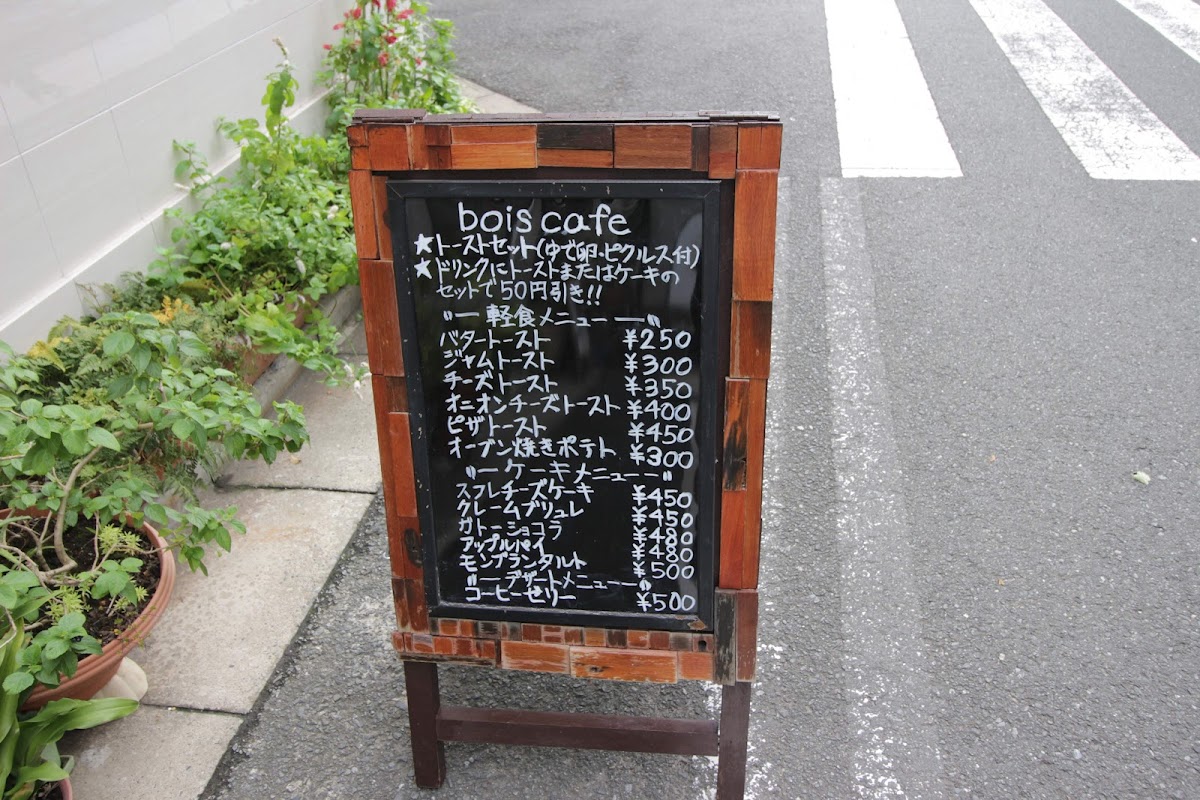 bois cafe
★トーストセット(ゆで卵・ピクルス付)
★ドリンクにトーストまたはケーキの
セットで50円引き!!
〃― 軽食メニュー ―〃
バタートースト ¥250
ジャムトースト ¥300
チーズトースト ¥350
オニオンチーズトースト ¥400
ピザトースト ¥450
オーブン焼きポテト ¥300
〃― ケーキメニュー ―〃
スフレチーズケーキ ¥450
クレームブリュレ ¥450
ガトーショコラ ¥480
アップルパイ ¥480
モンブランタルト ¥500
〃― デザートメニュー ―〃
コーヒーゼリー ¥500